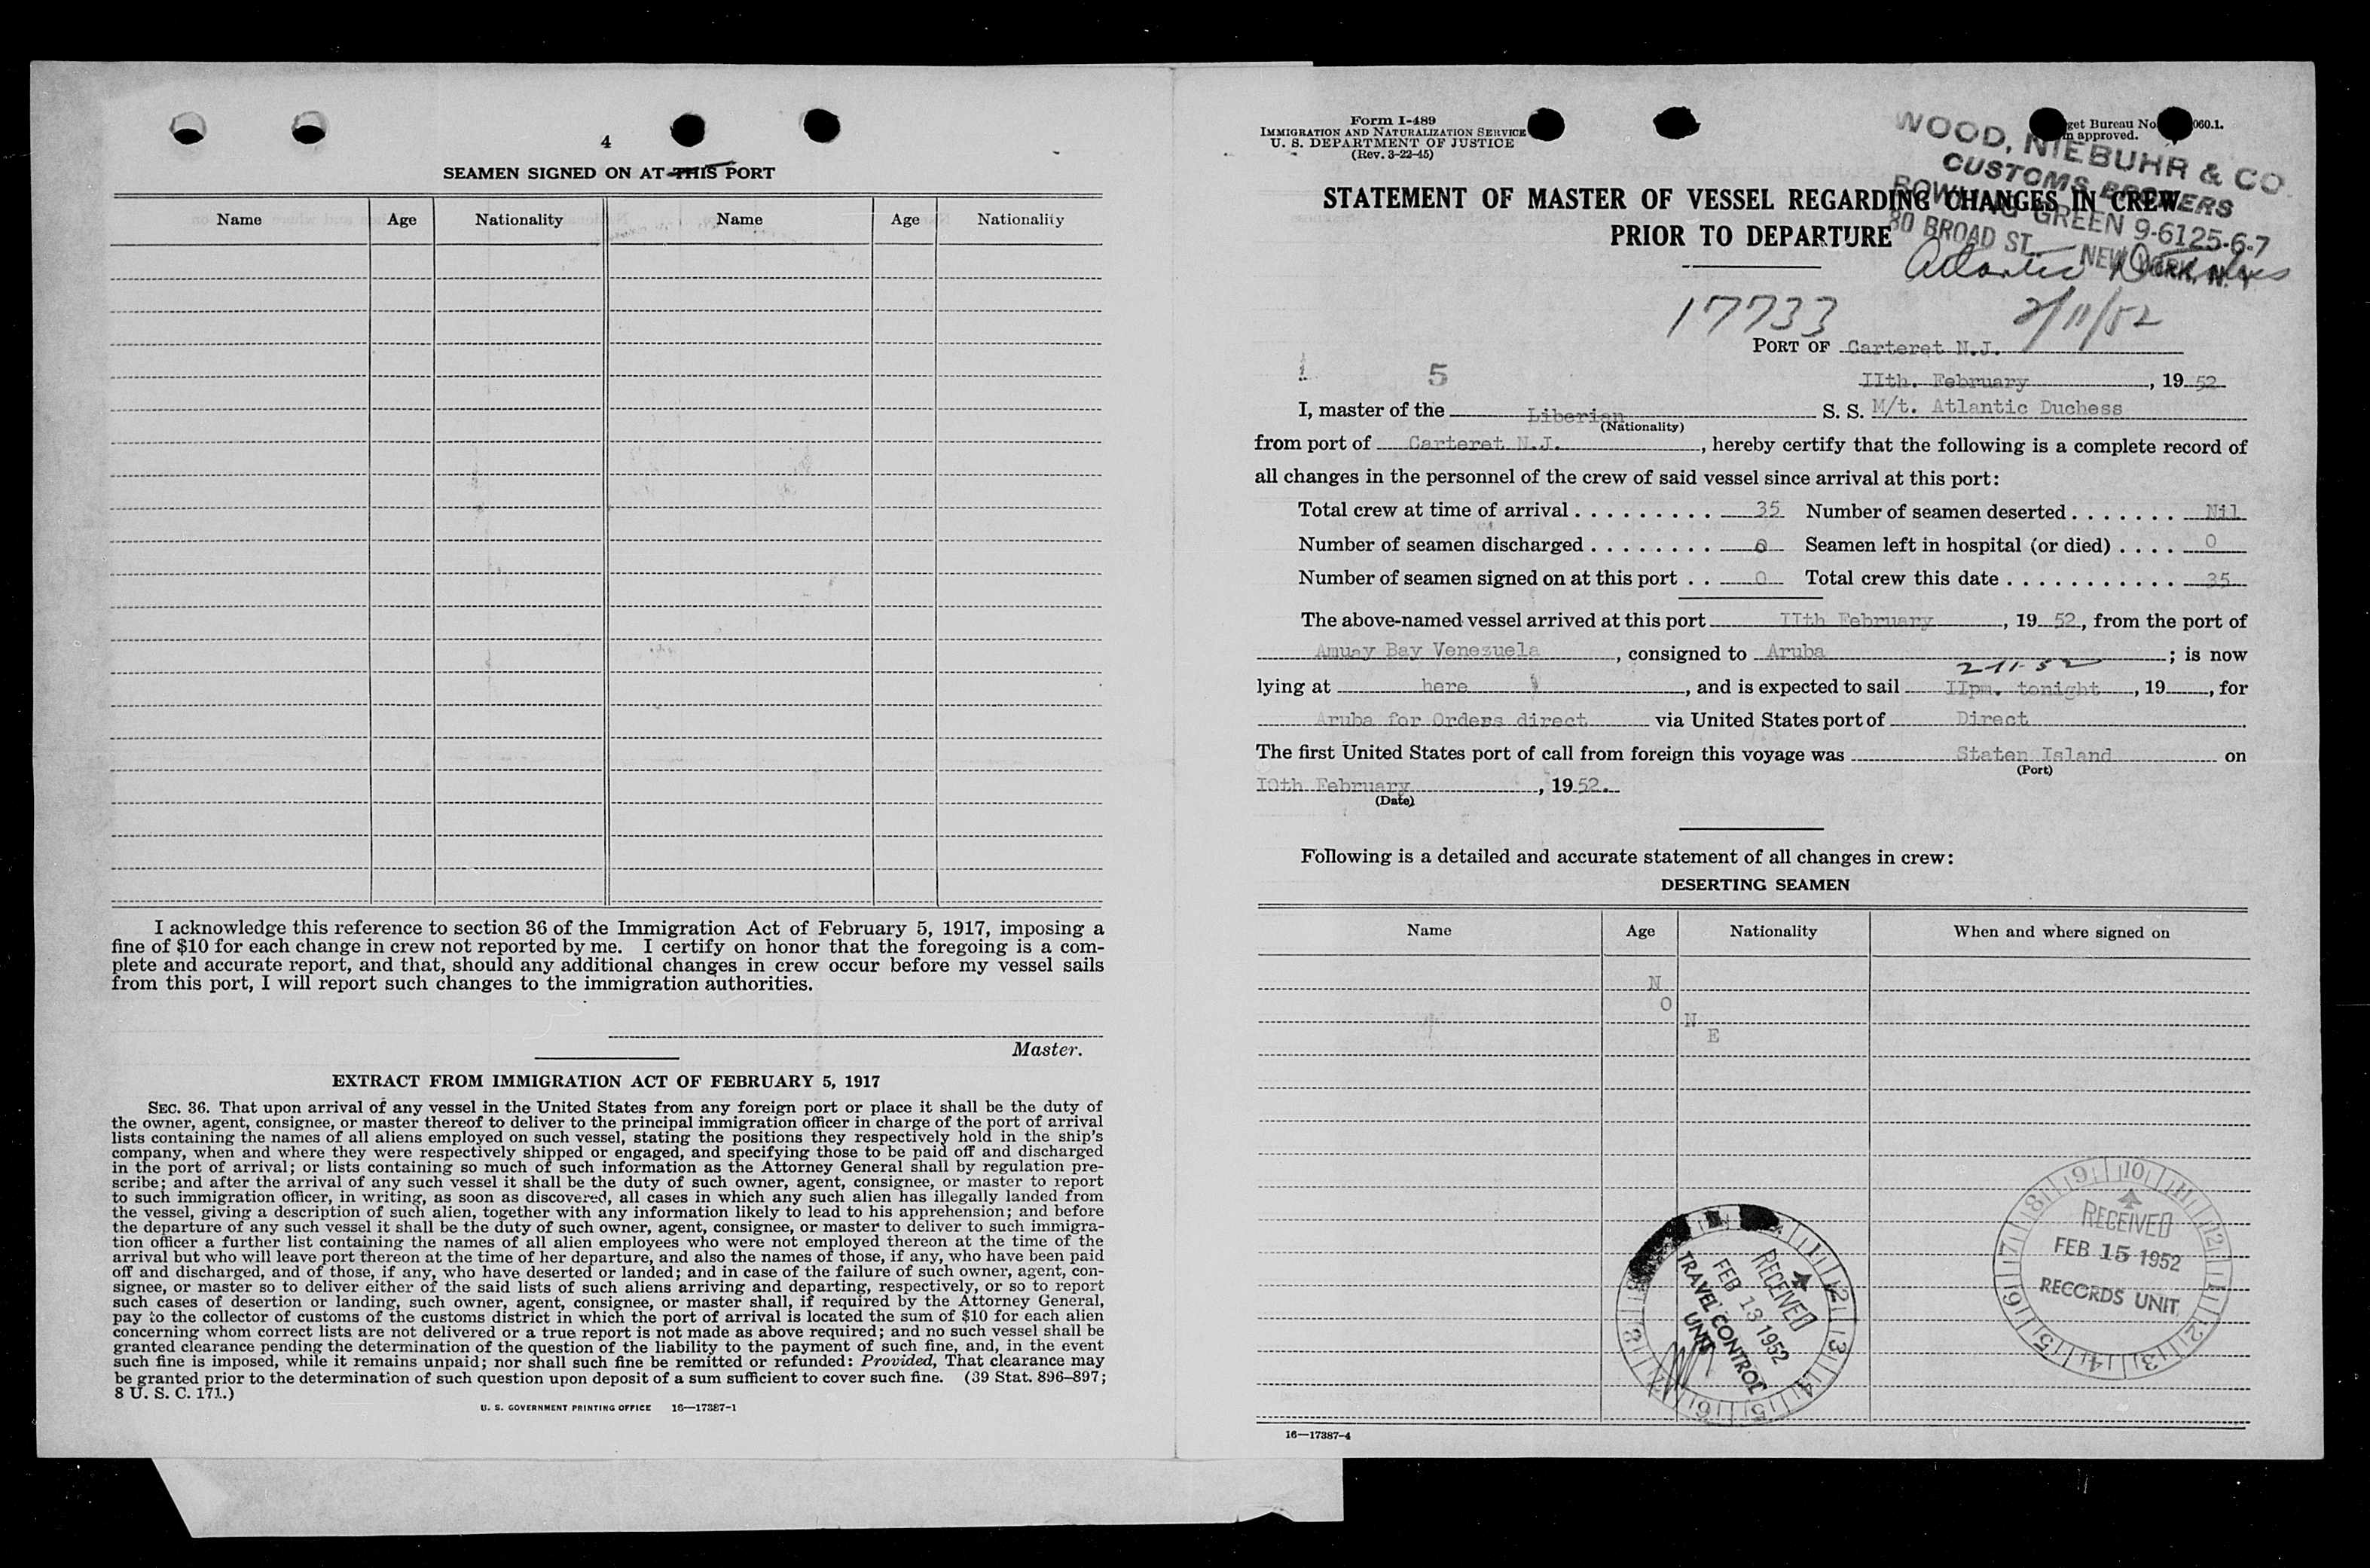 4
SEAMEN SIGNED ON AT THIS PORT
Name Age Nationality Name Age Nationality
I acknowledge this reference to section 36 of the Immigration Act of February 5, 1917, imposing a
fine of $10 for each change in crew not reported by me. I certify on honor that the foregoing is a com-
plete and accurate report, and that, should any additional changes in crew occur before my vessel sails
from this port, I will report such changes to the immigration authorities.
Master.
EXTRACT FROM IMMIGRATION ACT OF FEBRUARY 5, 1917
SEC. 36. That upon arrival of any vessel in the United States from any foreign port or place it shall be the duty of
the owner, agent, consignee, or master thereof to deliver to the principal immigration officer in charge of the port of arrival
lists containing the names of all aliens employed on such vessel, stating the positions they respectively hold in the ship's
company, when and where they were respectively shipped or engaged, and specifying those to be paid off and discharged
in the port of arrival; or lists containing so much of such information as the Attorney General shall by regulation pre-
scribe; and after the arrival of any such vessel it shall be the duty of such owner, agent, consignee, or master to report
to such immigration officer, in writing, as soon as discovered, all cases in which any such alien has illegally landed from
the vessel, giving a description of such alien, together with any information likely to lead to his apprehension; and before
the departure of any such vessel it shall be the duty of such owner, agent, consignee, or master to deliver to such immigra-
tion officer a further list containing the names of all alien employees who were not employed thereon at the time of the
arrival but who will leave port thereon at the time of her departure, and also the names of those, if any, who have been paid
off and discharged, and of those, if any, who have deserted or landed; and in case of the failure of such owner, agent, con-
signee, or master so to deliver either of the said lists of such aliens arriving and departing, respectively, or so to report
such cases of desertion or landing, such owner, agent, consignee, or master shall, if required by the Attorney General,
pay to the collector of customs of the customs district in which the port of arrival is located the sum of $10 for each alien
concerning whom correct lists are not delivered or a true report is not made as above required; and no such vessel shall be
granted clearance pending the determination of the question of the liability to the payment of such fine, and, in the event
such fine is imposed, while it remains unpaid; nor shall such fine be remitted or refunded: Provided, That clearance may
be granted prior to the determination of such question upon deposit of a sum sufficient to cover such fine. (39 Stat. 896–897;
8 U. S. C. 171.)
U. S. GOVERNMENT PRINTING OFFICE 16—17387-1
Form I-489
IMMIGRATION AND NATURALIZATION SERVICE
U. S. DEPARTMENT OF JUSTICE
(Rev. 3-22-45)
get Bureau No. 060.1.
approved.
WOOD, NIEBUHR & CO.
CUSTOMS BROKERS
BOWLING GREEN 9-6125-6-7
80 BROAD ST. NEW YORK, N. Y.
STATEMENT OF MASTER OF VESSEL REGARDING CHANGES IN CREW
PRIOR TO DEPARTURE
Atlantic Duchess
17733 2/11/52
PORT OF Carteret N.J.
5
IIth. February, 19 52
I, master of the Liberian S. S. M/t. Atlantic Duchess
(Nationality)
from port of Carteret N.J., hereby certify that the following is a complete record of
all changes in the personnel of the crew of said vessel since arrival at this port:
Total crew at time of arrival 35 Number of seamen deserted Nil
Number of seamen discharged 0 Seamen left in hospital (or died) 0
Number of seamen signed on at this port 0 Total crew this date 35
The above-named vessel arrived at this port IIth February, 19 52, from the port of
Amuay Bay Venezuela, consigned to Aruba; is now
2-11-52
lying at here, and is expected to sail IIpm. tonight, 19, for
Aruba for Orders direct via United States port of Direct
The first United States port of call from foreign this voyage was Staten Island on
(Port)
I0th February, 19 52.
(Date)
Following is a detailed and accurate statement of all changes in crew:
DESERTING SEAMEN
Name Age Nationality When and where signed on
N
O
N
E
RECEIVED
FEB 13 1952
TRAVEL CONTROL
UNIT
RECEIVED
FEB 15 1952
RECORDS UNIT
16—17387-4